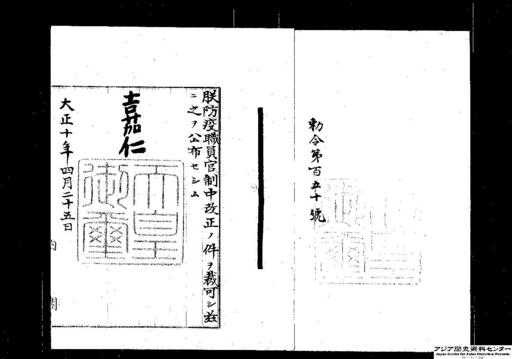 勅令第百五十號
朕防疫職員官制中改正ノ件ヲ裁可シ茲
ニ之ヲ公布セシム
嘉仁
天皇御璽
大正十年四月二十五日
内閣
アジア歴史資料センター
Japan Center for Asian Historical Records